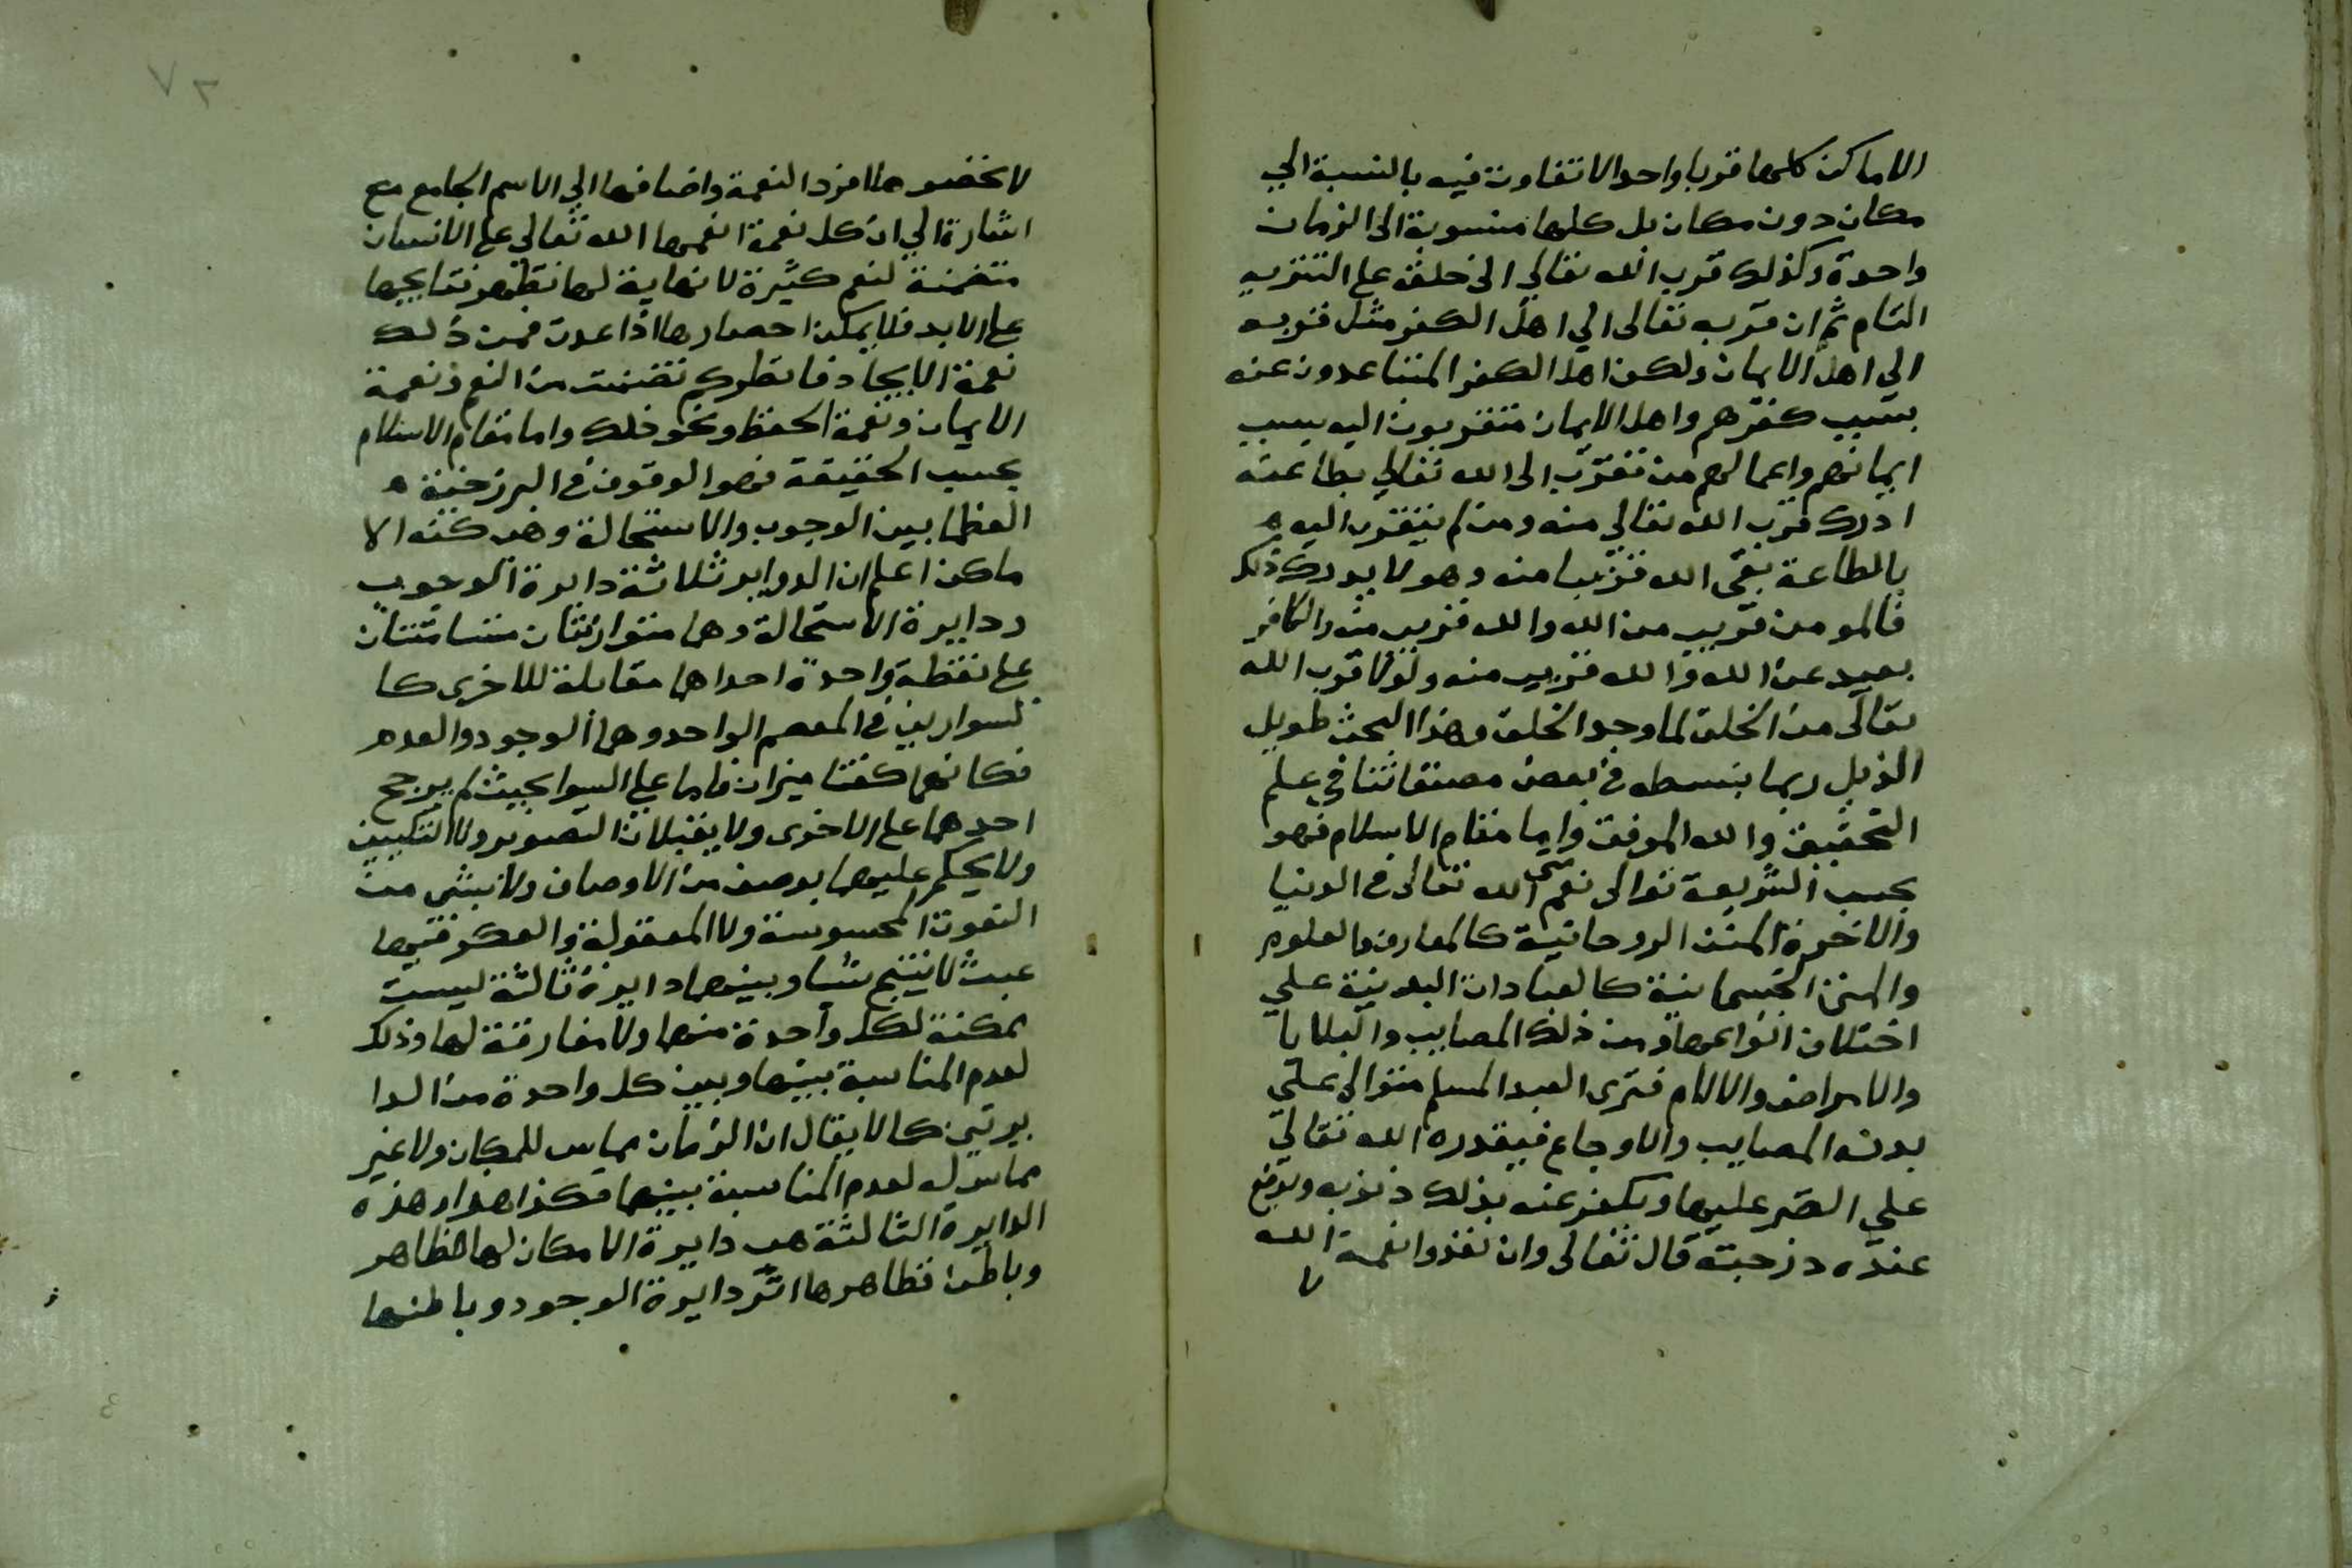 الاماكن كلها قربا واحدا لا تتفاوت فيه بالنسبة الي
مكان دون مكان بل كلها منسوبة الى الزمان
واحدة وكذلك قرب الله تعالي الى خلقه على التنزيه
التام ثم ان قربه تعالى الي اهل الكفر مثل قربه
الي اهل الايمان ولكن اهل الكفر المتباعدون عنه
بسبب كفرهم واهل الايمان متقربون اليه بسبب
ايمانهم واعمالهم من تقرب الى الله تعالي بطاعته
ادرك قرب الله تعالي منه ومن لم يتقرب اليه
بالطاعة بقى الله قريبا منه وهو لا يدرك ذلك
فالمومن قريب من الله والله قريب منه والكافر
بعيد عن الله والله قريب منه ولولا قرب الله
تعالى من الخلق لما وجد الخلق وهذا البحث طويل
الذيل ربما بنسطه في بعض مصنفاتنا في علم
التحقيق والله الموفق واما مقام الاسلام فهو
بحسب الشريعة توالى نعم الله تعالى في الدنيا
والاخرة المنن الروحانية كالمعارف والعلوم
والمنن الجسمانية كالعبادات البدنية علي
اختلاف انواعها ومن ذلك المصايب والبلايا
والامراض والالام فترى العبد المسلم متوالي علي
بدنه المصايب والاوجاع فيقدره الله تعالي
علي الصبر عليها ويكفر عنه بذلك ذنوبه ويرفع
عنده درجته قال تعالى وان تعدوا نعمة الله
لا
٧٢
لا تحصوها افرد النعمة واضافها الي الاسم الجامع مع
اشارة الي ان كل نعمة انعمها الله تعالي على الانسان
متضمنة لنعم كثيرة لا نهاية لها تظهر نتايجها
على الابد فلا يمكن احصارها اذا عدت فمن ذلك
نعمة الايجاد فانظر كم تضمنت من النعم نعمة
الايمان ونعمة الحفظ ونحو ذلك واما مقام الاسلام
بحسب الحقيقة فهو الوقوف في البرزخية
العظما بين الوجوب والاستحالة وهي كنه الا
ماكن اعلم ان الدواير ثلاثة دايرة الوجوب
ودايرة الاستحالة وهما متوازنتان متسامتتان
على نقطة واحدة احداهما مقابلة للاخرى كا
لسوارين في المعصم الواحد وهما الوجود والعدم
فكانهما كفتا ميزان قاما علي السوا بحيث لم يرجح
احدهما على الاخرى ولا يقبلان التصوير ولا التكييف
ولا يحكم عليهما بوصف من الاوصاف ولا بشي من
النعوت المحسوسة ولا المعقولة والفكر فيهما
عبث لا ينتج شيا وبينهما دايرة ثالثة ليست
بمكنة لكل واحدة منهما ولا مفارقة لهما وذلك
لعدم المناسبة بينها وبين كل واحدة من الدا
يرتين كما لا يقال ان الزمان مماس للمكان ولا غير
مماس له لعدم المناسبة بينهما فكذا هذا وهذه
الدايرة الثالثة هي دايرة الامكان لها ظاهر
وباطن فظاهرها اثر دايرة الوجود وباطنها